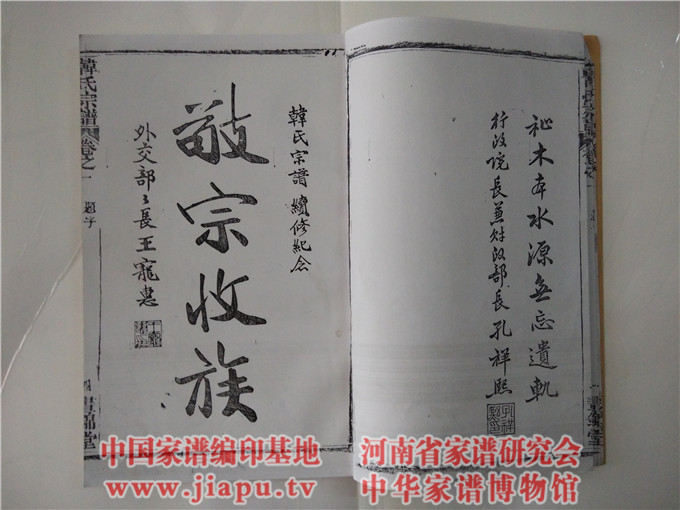 祉木本水源無忘遺軌
行政院長兼財政部長孔祥熙
韓氏宗譜續修紀念
敬宗收族
外交部々長王寵惠
韓氏宗譜 卷之一 題字
晝錦堂
中国家谱编印基地 河南省家谱研究会
www.jiapu.tv 中华家谱博物馆